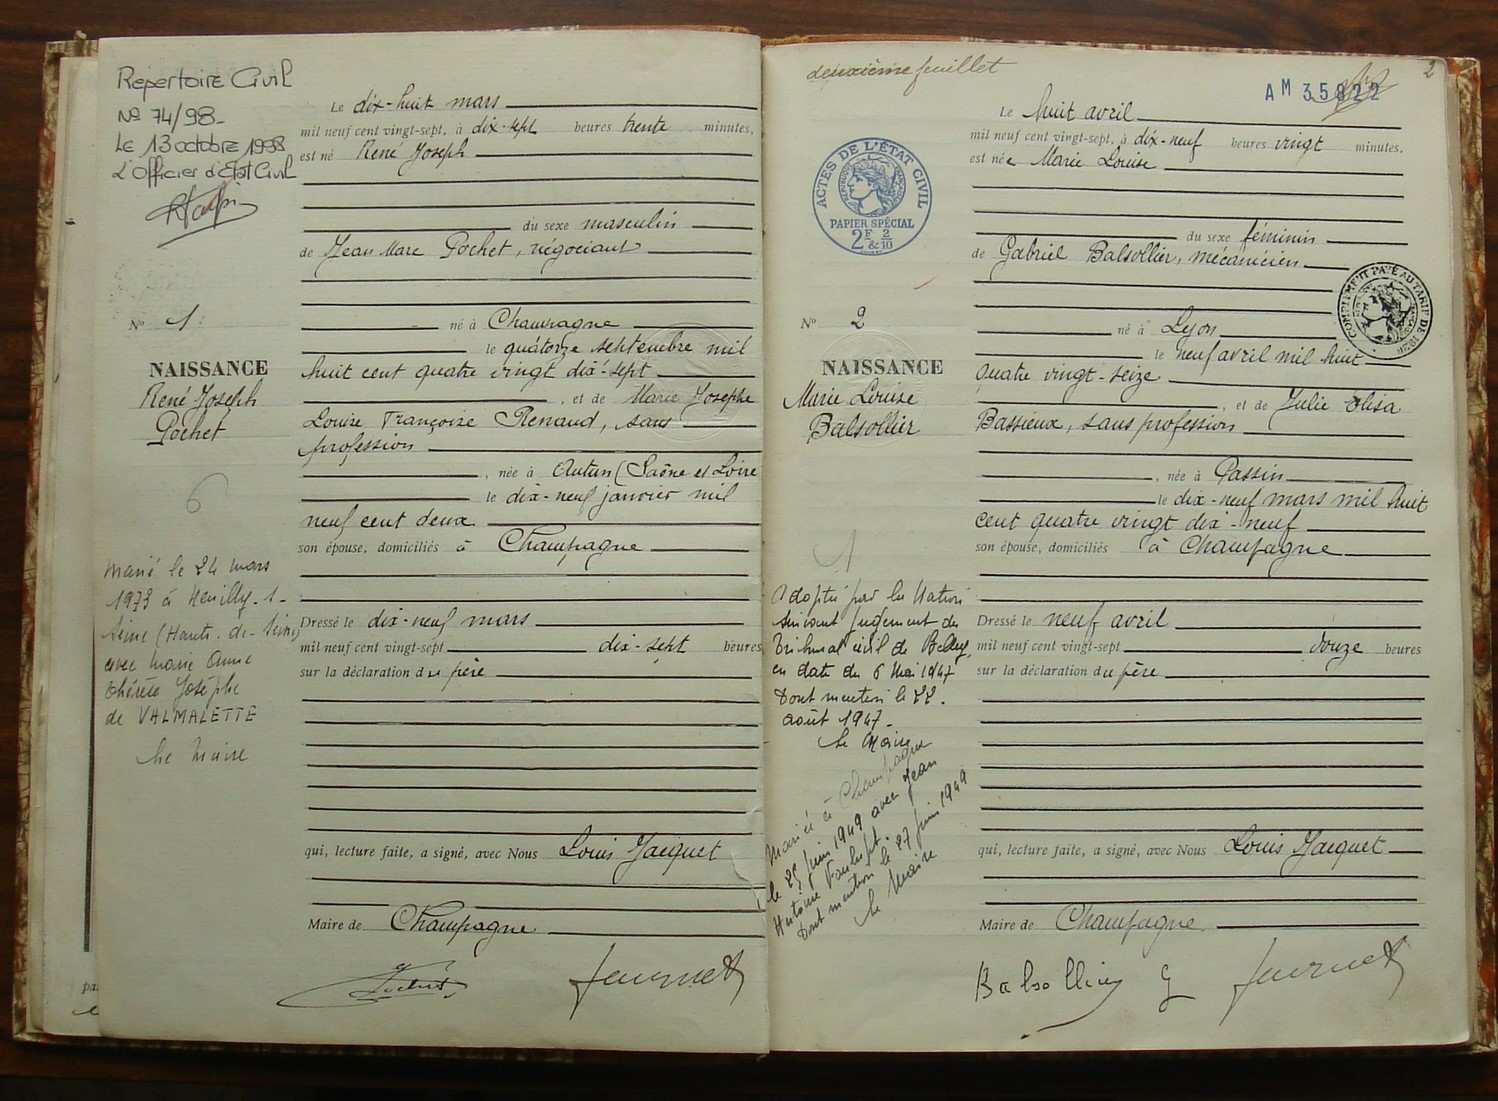 Répertoire Civil
N° 74/98-
Le 13 octobre 1998
L'Officier d'Etat Civil
Le dix-huit mars
mil neuf cent vingt-sept, à dix-sept heures trente minutes,
est né René Joseph
du sexe masculin
de Jean Marc Pochet, négociant
N° 1
né à Champagne
le quatorze septembre mil
huit cent quatre vingt dix-sept
NAISSANCE
René Joseph
Pochet
, et de Marie Josephe
Louise Françoise Renaud, sans
profession
, née à Autun (Saône et Loire
le dix-neuf janvier mil
neuf cent deux
son épouse, domiciliés à Champagne
6
Marié le 24 mars
1973 à Neuilly-s-
Seine (Hauts-de-Seine)
avec Marie Anne
Thérèse Josèphe
de VALMALETTE
Le Maire
Dressé le dix-neuf mars
mil neuf cent vingt-sept dix-sept heures
sur la déclaration du père
qui, lecture faite, a signé, avec Nous Louis Jacquet
Maire de Champagne
Pochet
deuxième feuillet
2
AM 35822
ACTES DE L'ÉTAT CIVIL
PAPIER SPÉCIAL
2F 2/10
&
Le huit avril
mil neuf cent vingt-sept, à dix-neuf heures vingt minutes,
est née Marie Louise
du sexe féminin
de Gabriel Balsollier, mécanicien
COMPLÉMENT PAYÉ AU TARIF DE
N° 2
né à Lyon
le neuf avril mil huit
quatre vingt-seize
NAISSANCE
Marie Louise
Balsollier
, et de Julie Elisa
Bassieux, sans profession
, née à Passin
le dix-neuf mars mil huit
cent quatre vingt dix-neuf
son épouse, domiciliés à Champagne
1
Adoptée par la Nation
suivant jugement du
Tribunal civil de Belley
en date du 6 Mai 1947
Dont mention le 22
août 1947-
Le Maire
Mariée à Champagne
le 25 juin 1949 avec Jean
Antoine
Dont mention le 27 juin 1949
Le Maire
Dressé le neuf avril
mil neuf cent vingt-sept douze heures
sur la déclaration du père
qui, lecture faite, a signé, avec Nous Louis Jacquet
Maire de Champagne
Balsollier G